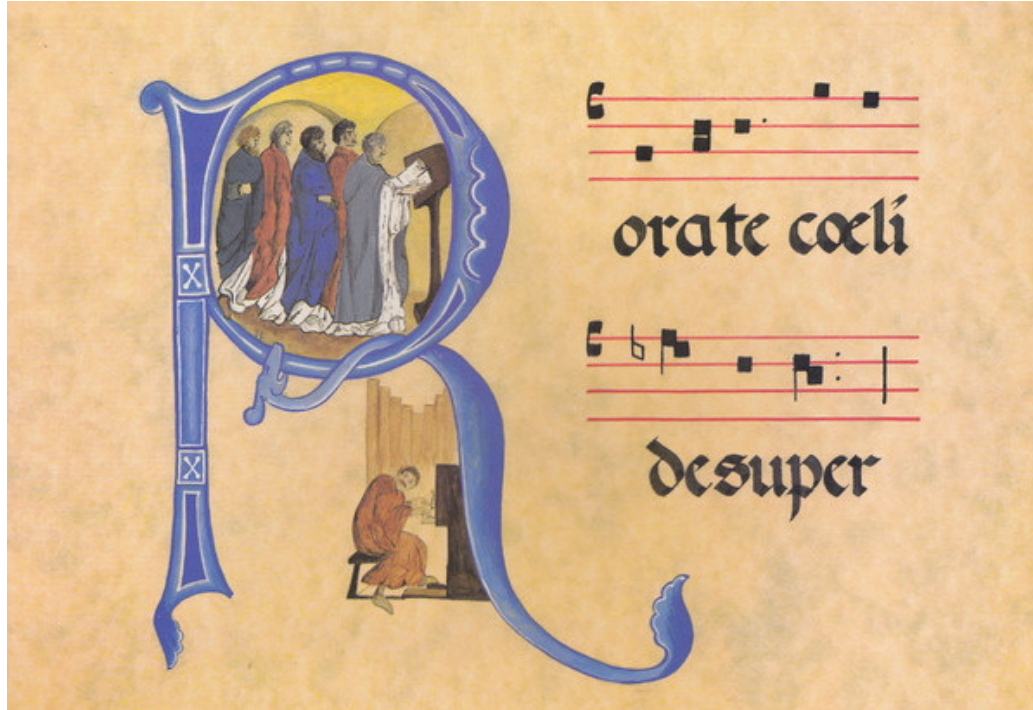 Rorate cœli
desuper